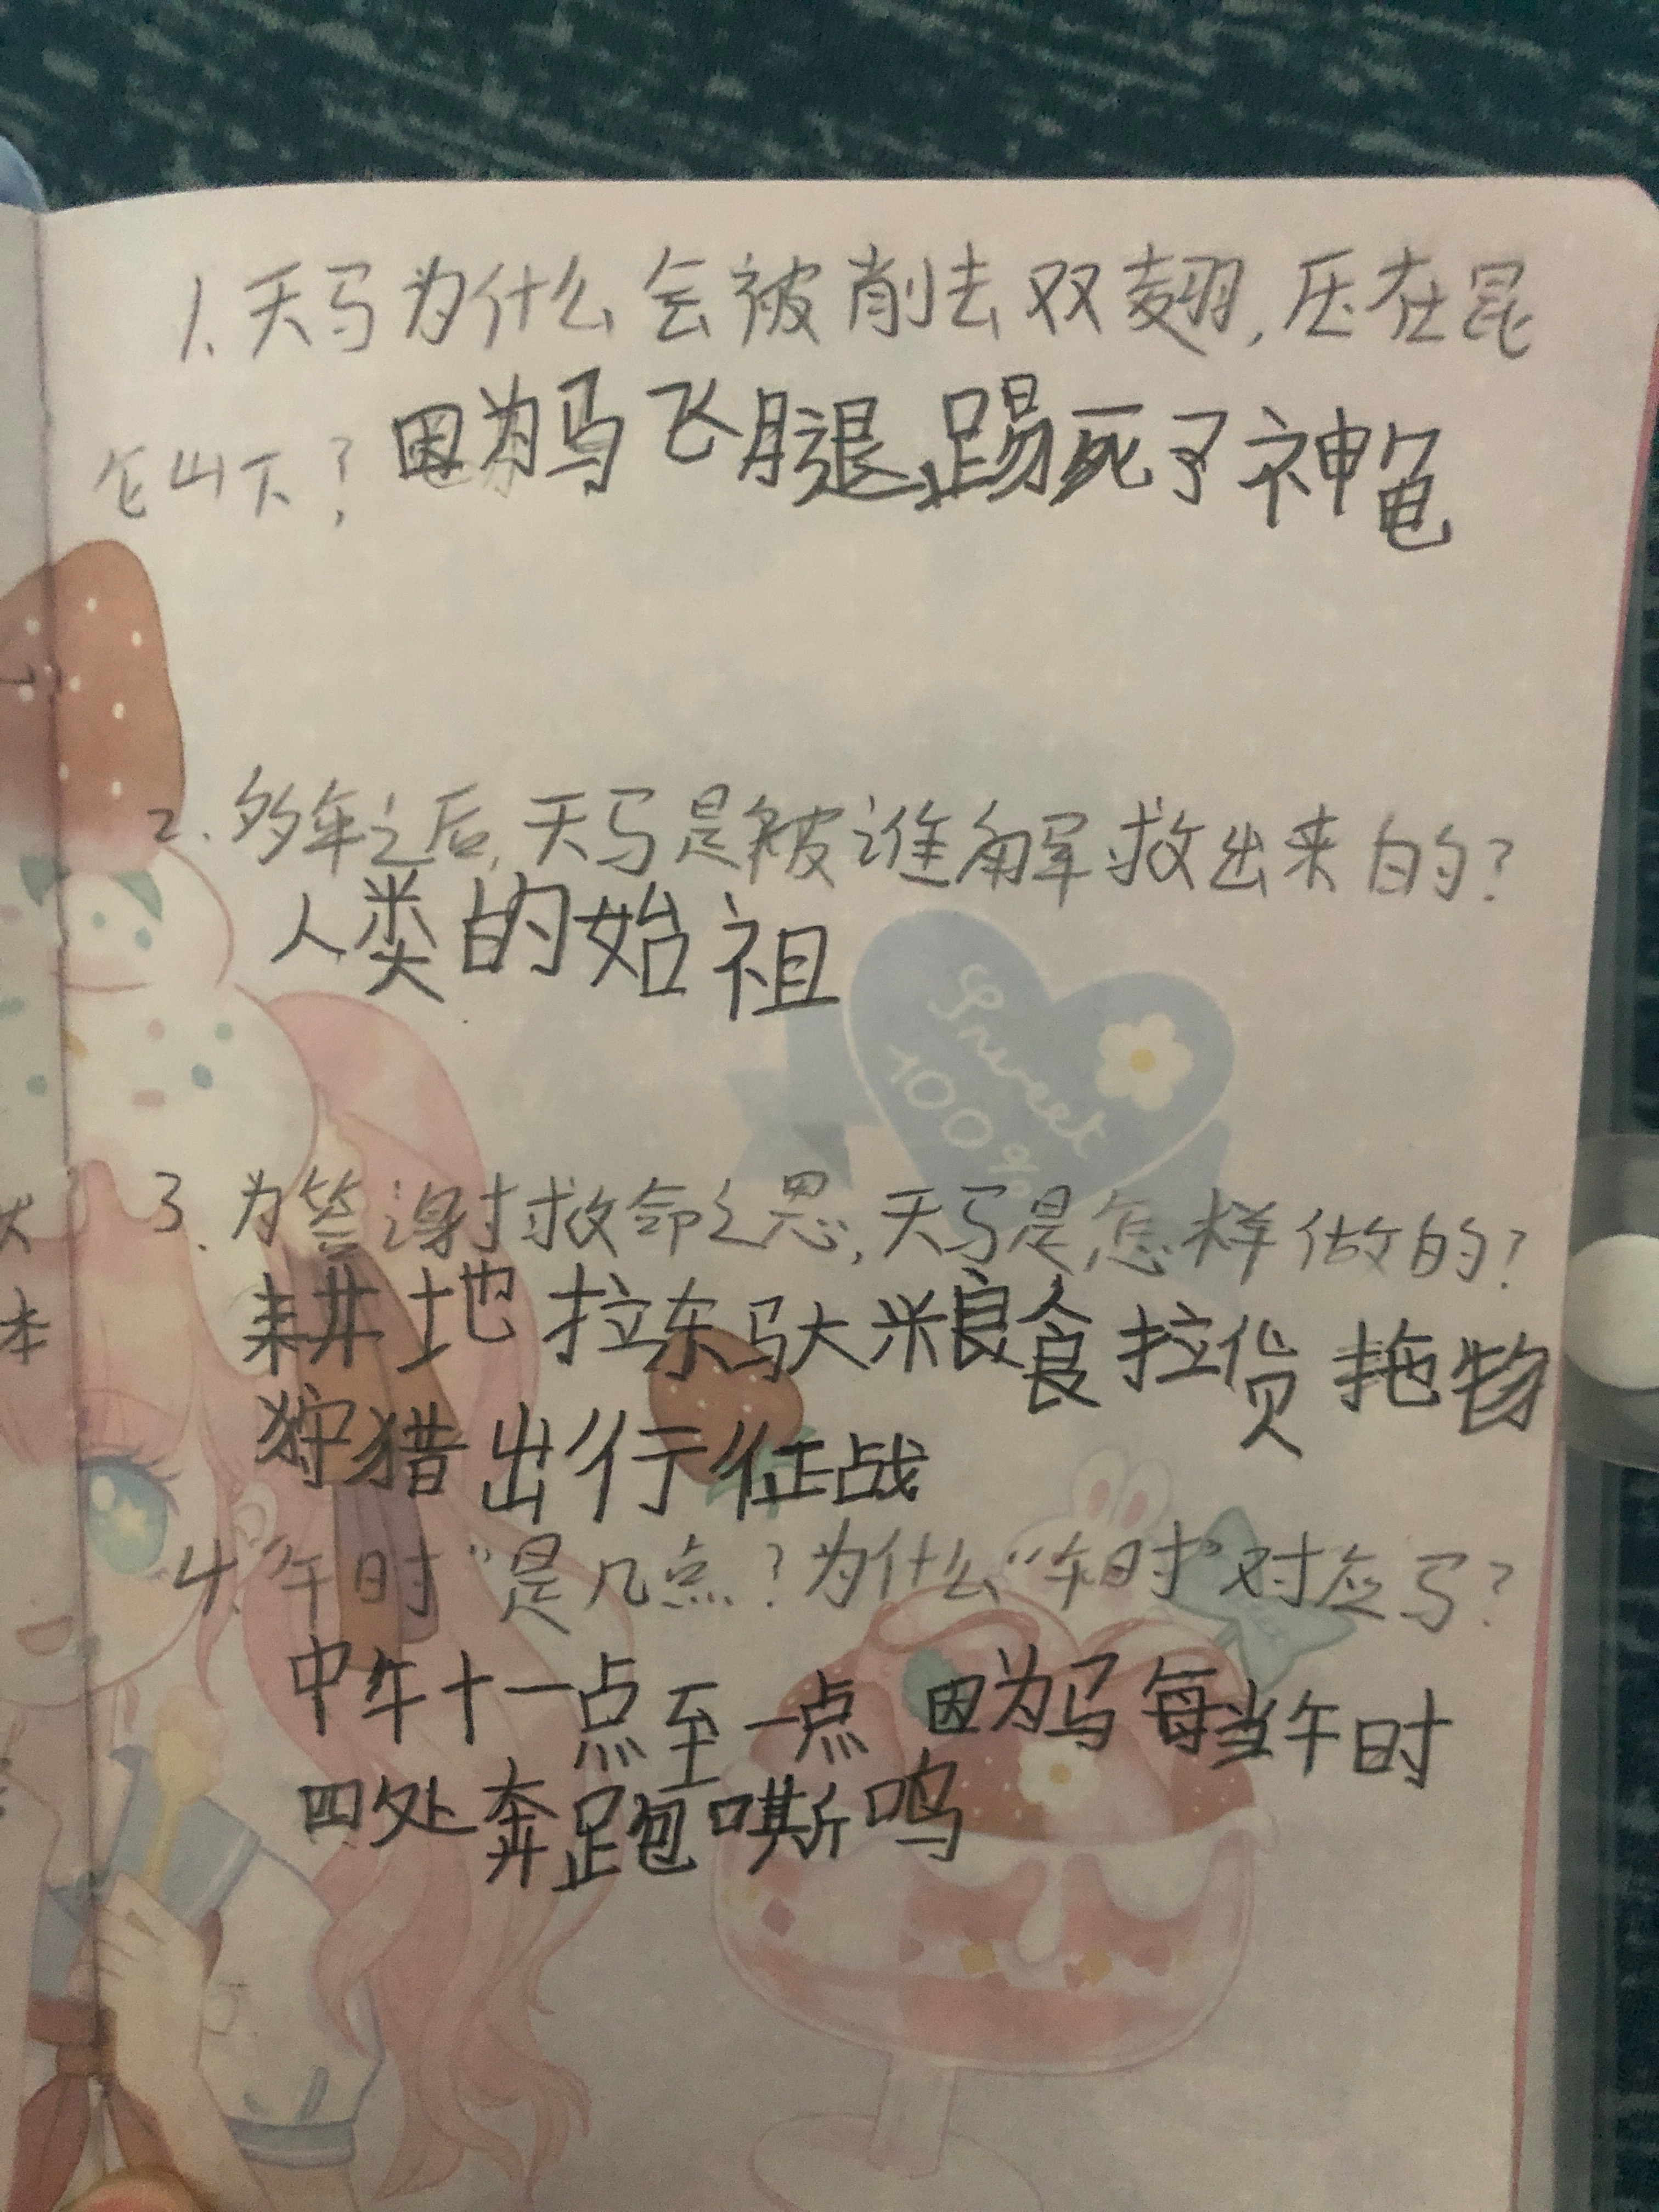 1. 天马为什么会被削去双翅，压在昆
仑山下？ 因为马飞腿踢死了神龟
2. 多年之后，天马是被谁解救出来的？
人类的始祖
Sweet
100%
3. 为答谢救命之恩，天马是怎样做的？
耕地 拉东驮米粮食 拉货 拖物
狩猎 出行 征战
4. “午时”是几点？为什么“午时”对应马？
中午十一点至一点 因为马每当午时
四处奔跑嘶鸣
本